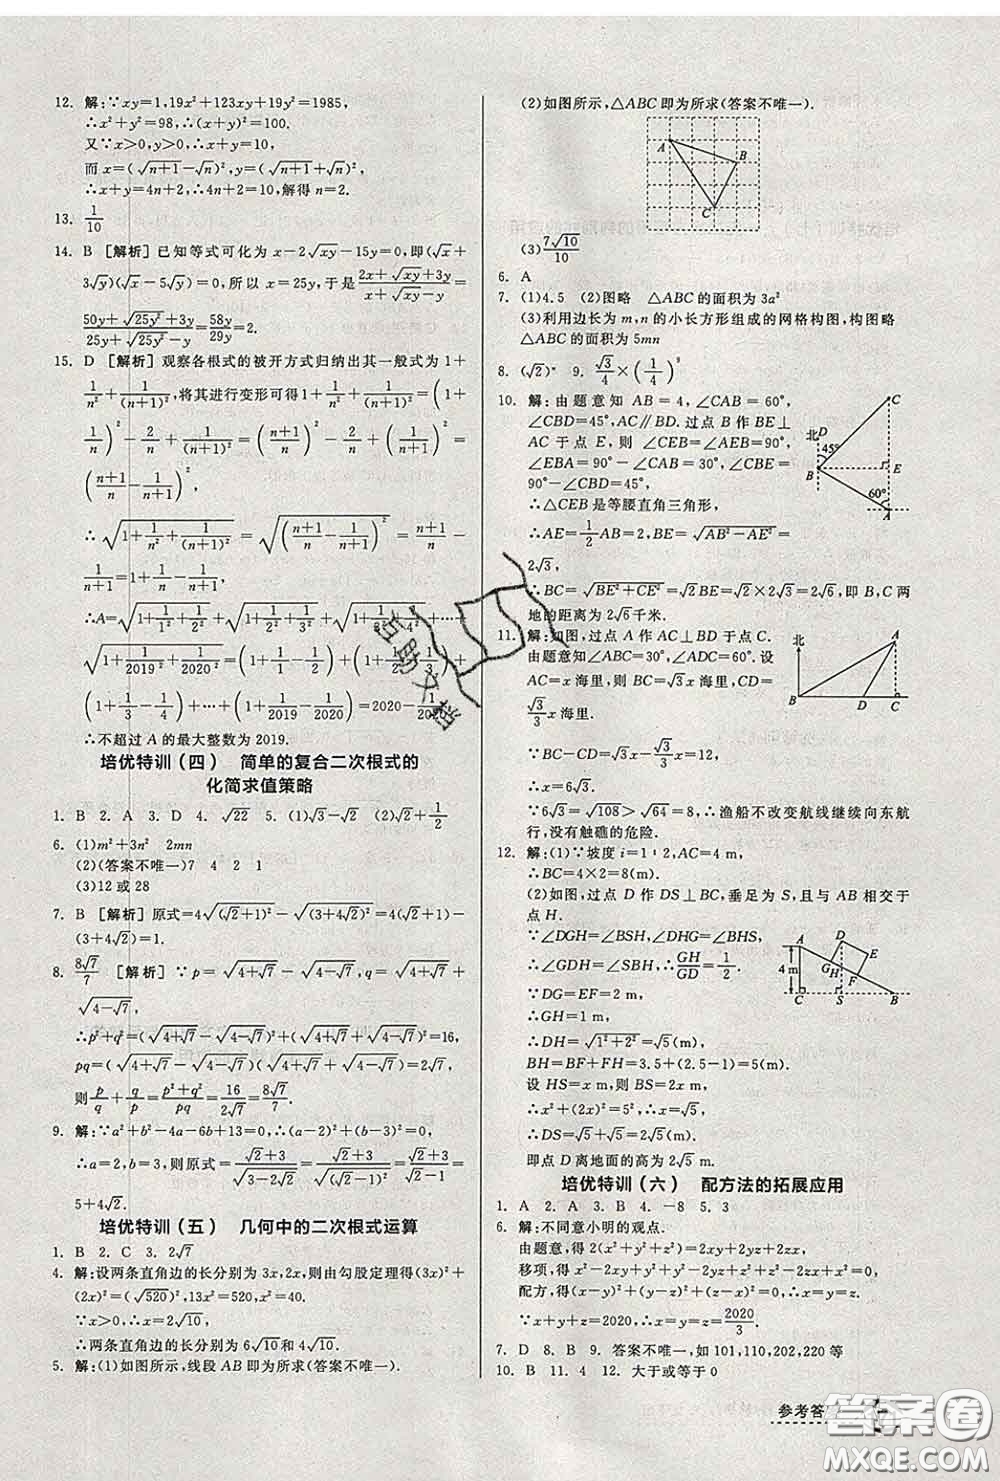 12. 解:∵xy=1,19x²+123xy+19y²=1985,
∴x²+y²=98,∴(x+y)²=100.
又∵x>0,y>0,∴x+y=10,
而 x=(√(n+1)-√n)²,y=(√(n+1)+√n)²,
∴x+y=4n+2,∴4n+2=10,解得 n=2.
13. 1/10
14. B [解析] 已知等式可化为 x-2√(xy)-15y=0,即(√x+
3√y)(√x-5√y)=0,所以 x=25y,∴原式=(2x+√(xy)+3y)/(x+√(xy)-y)=
(50y+√(25y²)+3y)/(25y+√(25y²)-y)=58y/29y=2.
15. D [解析] 观察各根式的被开方式归纳出其一般式为 1+
1/n²+1/(n+1)²,将其进行变形可得1+1/n²+1/(n+1)²=(1+
1/n)²-2/n+1/(n+1)²=((n+1)/n)²-2/n+1/(n+1)²=
((n+1)/n-1/(n+1))²,
∴√(1+1/n²+1/(n+1)²)=√(((n+1)/n-1/(n+1))²)=(n+1)/n-
1/(n+1)=1+1/n-1/(n+1).
∴A=√(1+1/1²+1/2²)+√(1+1/2²+1/3²)+√(1+1/3²+1/4²)+…+
√(1+1/2019²+1/2020²)=(1+1/1-1/2)+(1+1/2-1/3)+
(1+1/3-1/4)+…+(1+1/2019-1/2020)=2020-1/2020,
∴不超过 A 的最大整数为 2019.
培优特训(四) 简单的复合二次根式的
化简求值策略
1. B 2. A 3. D 4. √22 5. (1)√3-√2 (2)√2+1/2
6. (1)m²+3n² 2mn
(2)(答案不唯一)7 4 2 1
(3)12 或 28
7. B [解析] 原式=4√((√2+1)²)-√((3+4√2)²)=4(√2+1)-
(3+4√2)=1.
8. 8√7/7 [解析] ∵p=√(4+√7)-√(4-√7),q=√(4+√7)+
√(4-√7),
∴p²+q²=(√(4+√7)-√(4-√7))²+(√(4+√7)+√(4-√7))²=16,
pq=(√(4+√7)-√(4-√7))(√(4+√7)+√(4-√7))=2√7,
则 p/q+q/p=(p²+q²)/pq=16/(2√7)=8√7/7.
9. 解:∵a²+b²-4a-6b+13=0,∴(a-2)²+(b-3)²=0,
∴a=2,b=3,则原式=(√2+3)/√(√2×3+3)
5+4√2.
培优特训(五) 几何中的二次根式运算
1. B 2. C 3. 2√7
4. 解:设两条直角边的长分别为 3x,2x,则由勾股定理得(3x)²+
(2x)²=(√520)²,13x²=520,x²=40.
∵x>0,∴x=2√10,
∴两条直角边的长分别为 6√10和 4√10.
5. 解:(1)如图所示,线段 AB 即为所求(答案不唯一).
(2)如图所示,△ABC 即为所求(答案不唯一).
A
B
C
(3)7√10/10
6. A
7. (1)4.5 (2)图略 △ABC 的面积为 3a²
(3)利用边长为 m,n 的小长方形组成的网格构图,构图略
△ABC 的面积为 5mn
8. (√2)ⁿ 9. √3/4×(1/4)⁹
10. 解:由题意知 AB=4,∠CAB=60°,
∠CBD=45°,AC∥BD. 过点 B 作 BE⊥
AC 于点 E,则 ∠CEB=∠AEB=90°,
∠EBA=90°-∠CAB=30°,∠CBE=
90°-∠CBD=45°,
∴△CEB 是等腰直角三角形,
∴AE=1/2AB=2,BE=√(AB²-AE²)=
2√3,
∴BC=√(BE²+CE²)=√2BE=√2×2√3=2√6,即 B,C 两
地的距离为 2√6千米.
北 D 45° B C E 60° A
11. 解:如图,过点 A 作 AC⊥BD 于点 C.
由题意知∠BAC=60°,∠DAC=30°. 设
AC=x 海里,则 BC=√3x 海里,CD=
√3/3 x 海里.
∵BC-CD=√3x-√3/3 x=12,
∴x=6√3.
∵6√3=√108>√64=8,∴渔船不改变航线继续向东航
行,没有触礁的危险.
北 A B D C
12. 解:(1)∵坡度 i=1∶2,AC=4 m,
∴BC=4×2=8(m).
(2)如图,过点 D 作 DS⊥BC,垂足为 S,且与 AB 相交于
点 H.
∵∠DGH=∠BSH,∠DHG=∠BHS,
∴∠GDH=∠SBH,∴GH/GD=1/2.
∵DG=EF=2(m),
∴GH=1(m),
∴DH=√(1²+2²)=√5(m),
BH=BF+FH=3.5+(2.5-1)=5(m).
设 HS=x m,则 BS=2x m,
∴x²+(2x)²=5²,∴x=√5,
∴DS=√5+√5=2√5(m).
即点 D 离地面的高为 2√5 m.
A D E G H F 4 m C S B
培优特训(六) 配方法的拓展应用
1. A 2. A 3. B 4. -8 5. 3
6. 解:不同意小明的观点.
由题意,得 2(x²+y²+z²)=2xy+2yz+2xz,
移项,得 x²-2xy+y²+y²-2yz+z²+x²-2xz+z²=0,
配方,得(x-y)²+(y-z)²+(z-x)²=0,∴x=y=z.
∵x+y+z=2020,∴x=y=z=2020/3.
7. D 8. B 9. 答案不唯一,如 101,110,202,220 等
10. B 11. 4 12. 大于或等于 0
参考答
答案圈
MXQE.COM
百助文档